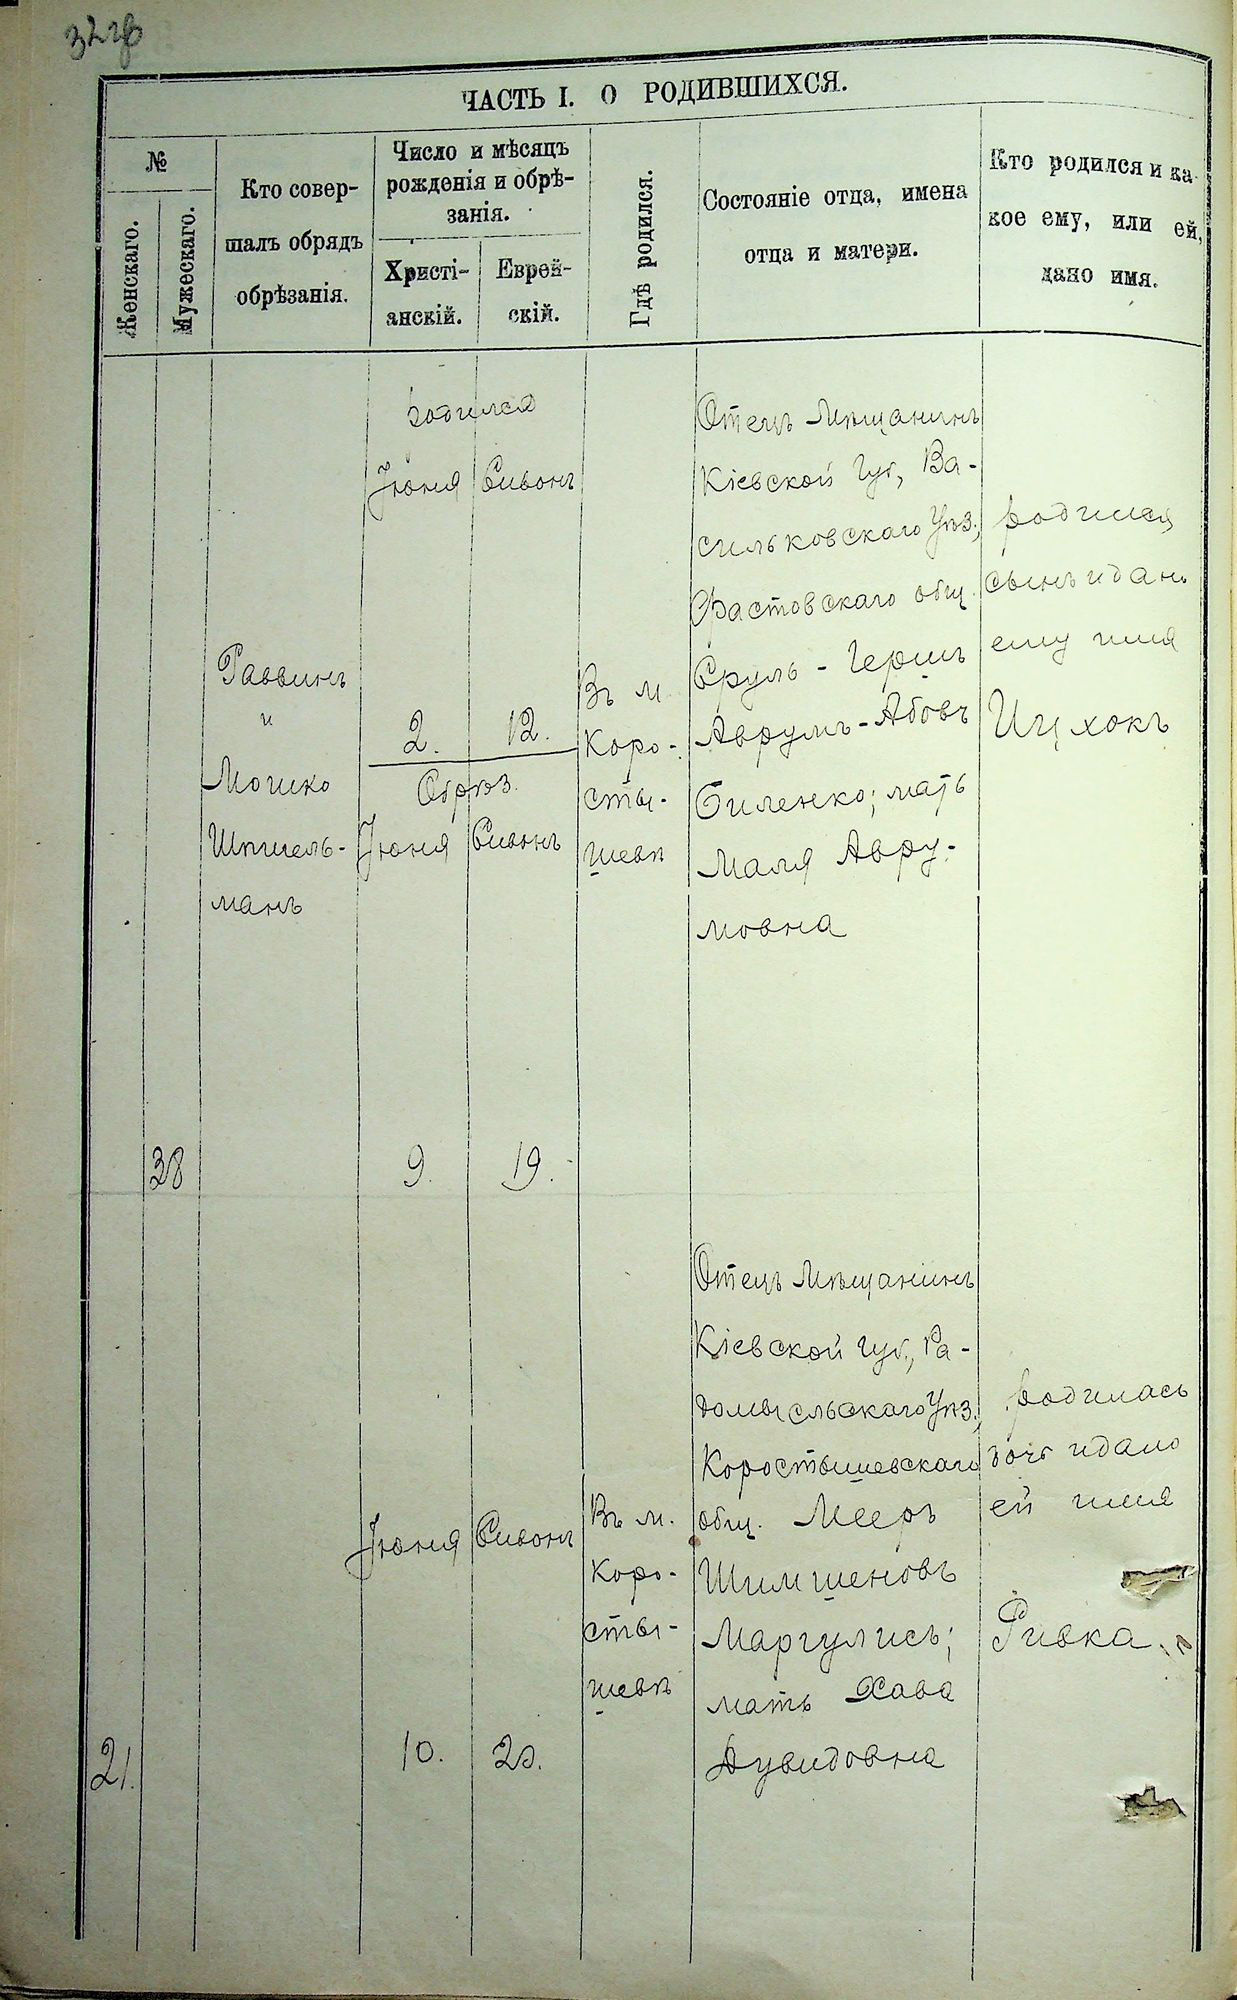 ЧАСТЬ I. О РОДИВШИХСЯ.
№
Женскаго.
Мужескаго.
Кто совер-
шалъ обрядъ
обрѣзанія.
Число и мѣсяцъ
рожденія и обрѣ-
занія.
Христі-
анскій.
Еврей-
скій.
Гдѣ родился.
Состояніе отца, имена
отца и матери.
Кто родился и ка-
кое ему, или ей,
дано имя.
38
Раввинъ
и
Мошко
Шпигель-
манъ
родился
Іюня Сивонъ
2. 12.
Обрѣз.
Іюня Сивонъ
9. 19.
Въ м.
Коро-
сты-
шевѣ
Отецъ Мѣщанинъ
Кіевской Губ, Ва-
сильковскаго Уѣз;
Фастовскаго общ.
Сруль-Гершъ
Аврумъ-Абовъ
Биленко; мать
Маля Авру-
мовна
родился
сынъ и дано
ему имя
Ицхокъ
21.
Іюня Сивонъ
10. 20.
Въ м.
Коро-
сты-
шевѣ
Отецъ Мѣщанинъ
Кіевской Губ, Ра-
домысльскаго Уѣз,
Коростышевскаго
общ. Мееръ
Шимшеновъ
Маргулисъ;
мать Хава
Дувидовна
родилась
дочь и дано
ей имя
Ривка